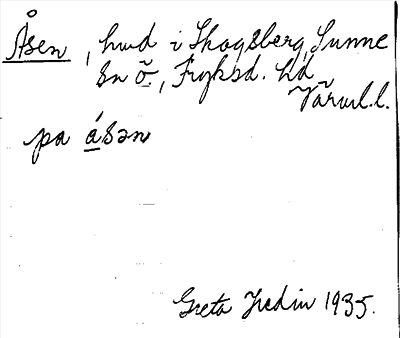 Åsen, hmd i Skogsberg, Sunne
sn ö., Fryksd. hd
Värml. l.
pa åsən
Greta Hedin 1935.